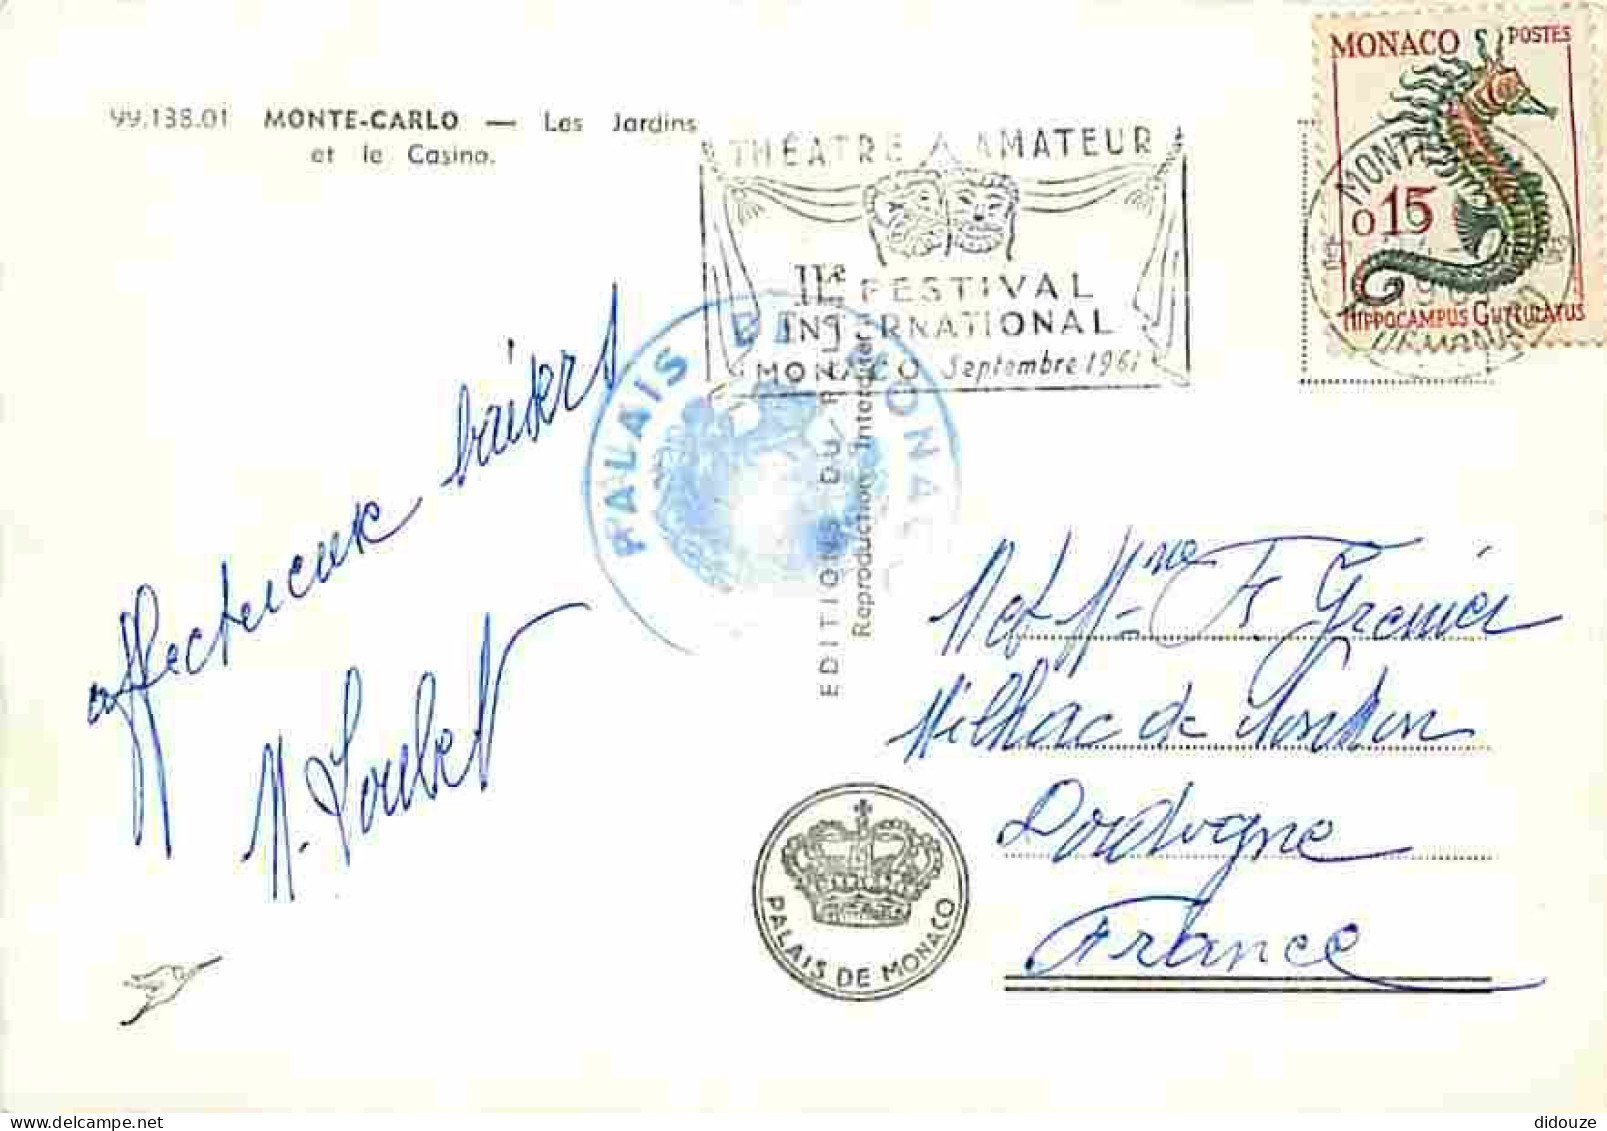 99.138.01 MONTE-CARLO — Les Jardins
et le Casino.
THÉATRE AMATEUR
IIe FESTIVAL
INTERNATIONAL
MONACO Septembre 1961
MONACO POSTES
0 15
HIPPOCAMPUS GUTTULATUS
MONTE
PALAIS DE MONAC
EDITIONS DU
Reproduction Interdite
affectueux baisers
M. Joubert
M et Mme F Grenier
Milhac de Nontron
Dordogne
France
PALAIS DE MONACO
didouze